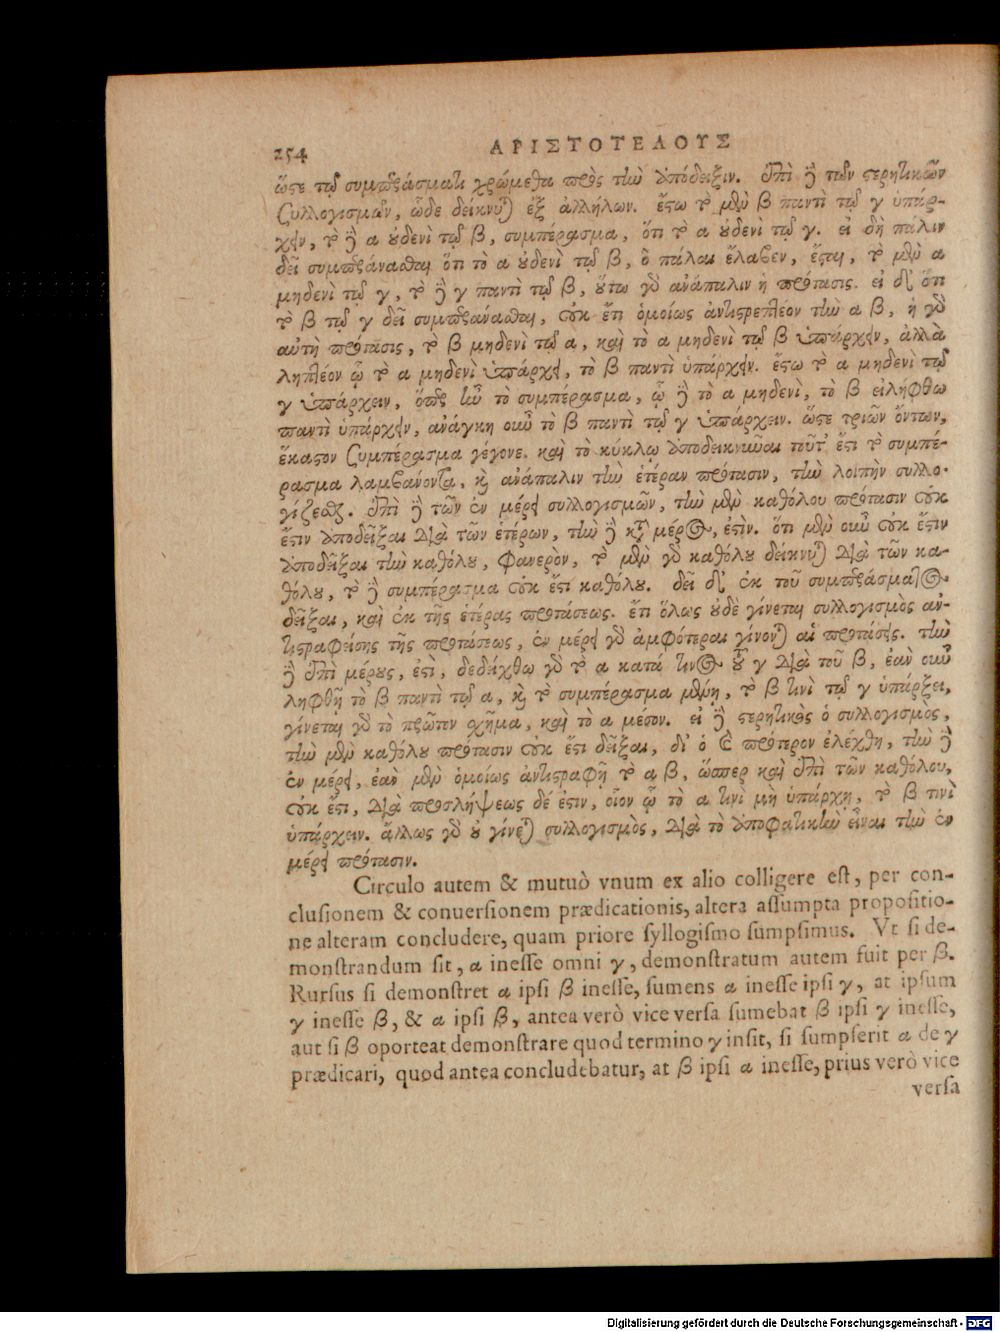 254
ΑΡΙΣΤΟΤΕΛΟΥΣ
ὥστε τῷ συμπεράσματι χρώμεθα πρὸς τὴν ἀπόδειξιν. ἐπὶ δὲ τῶν στερητικῶν
συλλογισμῶν, ὧδε δείκνυται ἐξ ἀλλήλων. ἔστω τὸ μὲν β παντὶ τῷ γ ὑπάρ-
χειν, τὸ δὲ α οὐδενὶ τῷ β, συμπέρασμα, ὅτι τὸ α οὐδενὶ τῷ γ. εἰ δὴ πάλιν
δεῖ συμπεράνασθαι ὅτι τὸ α οὐδενὶ τῷ β, ὃ πάλαι ἔλαβεν, ἔσται, τὸ μὲν α
μηδενὶ τῷ γ, τὸ δὲ γ παντὶ τῷ β, οὕτω γὰρ ἀνάπαλιν ἡ πρότασις. εἰ δ' ὅτι
τὸ β τῷ γ δεῖ συμπεράνασθαι, οὐκ ἔτι ὁμοίως ἀντιστρεπτέον τὴν α β, ἡ γὰρ
αὐτὴ πρότασις, τὸ β μηδενὶ τῷ α, καὶ τὸ α μηδενὶ τῷ β ὑπάρχειν, ἀλλὰ
ληπτέον ᾧ τὸ α μηδενὶ ὑπάρχει, τὸ β παντὶ ὑπάρχειν. ἔστω τὸ α μηδενὶ τῷ
γ ὑπάρχειν, ὅπερ ἦν τὸ συμπέρασμα, ᾧ δὲ τὸ α μηδενὶ, τὸ β εἰλήφθω
παντὶ ὑπάρχειν, ἀνάγκη οὖν τὸ β παντὶ τῷ γ ὑπάρχειν. ὥστε τριῶν ὄντων,
ἕκαστον συμπέρασμα γέγονε. καὶ τὸ κύκλῳ ἀποδεικνύναι τοῦτ' ἔστι τὸ συμπέ-
ρασμα λαμβάνοντα, καὶ ἀνάπαλιν τὴν ἑτέραν πρότασιν, τὴν λοιπὴν συλλο-
γίζεσθαι. ἐπὶ δὲ τῶν ἐν μέρει συλλογισμῶν, τὴν μὲν καθόλου πρότασιν οὐκ
ἔστιν ἀποδεῖξαι διὰ τῶν ἑτέρων, τὴν δὲ κατὰ μέρος, ἐστὶν. ὅτι μὲν οὖν οὐκ ἔστιν
ἀποδεῖξαι τὴν καθόλου, φανερὸν, τὸ μὲν γὰρ καθόλου δείκνυται διὰ τῶν κα-
θόλου, τὸ δὲ συμπέρασμα οὐκ ἔστι καθόλου. δεῖ δ' ἐκ τοῦ συμπεράσματος
δεῖξαι, καὶ ἐκ τῆς ἑτέρας προτάσεως. ἔτι ὅλως οὐδὲ γίνεται συλλογισμὸς ἀν-
τιστραφείσης τῆς προτάσεως, ἐν μέρει γὰρ ἀμφότεραι γίνονται αἱ προτάσεις. τὴν
δὲ ἐπὶ μέρους, ἐστὶ, δεδείχθω γὰρ τὸ α κατά τινος τοῦ γ διὰ τοῦ β, ἐὰν οὖν
ληφθῇ τὸ β παντὶ τῷ α, καὶ τὸ συμπέρασμα μένῃ, τὸ β τινὶ τῷ γ ὑπάρξει,
γίνεται γὰρ τὸ πρῶτον σχῆμα, καὶ τὸ α μέσον. εἰ δὲ στερητικὸς ὁ συλλογισμὸς,
τὴν μὲν καθόλου πρότασιν οὐκ ἔστι δεῖξαι, δι' ὃ καὶ πρότερον ἐλέχθη, τὴν δὲ
ἐν μέρει, ἐὰν μὲν ὁμοίως ἀντιστραφῇ τὸ α β, ὥσπερ καὶ ἐπὶ τῶν καθόλου,
οὐκ ἔστι, διὰ προσλήψεως δέ ἐστιν, οἷον ᾧ τὸ α τινὶ μὴ ὑπάρχῃ, τὸ β τινὶ
ὑπάρχειν. ἄλλως γὰρ οὐ γίνεται συλλογισμὸς, διὰ τὸ ἀποφατικὴν εἶναι τὴν ἐν
μέρει πρότασιν.
Circulo autem & mutuò vnum ex alio colligere est, per con-
clusionem & conuersionem prædicationis, altera assumpta propositio-
ne alteram concludere, quam priore syllogismo sumpsimus. Vt si de-
monstrandum sit, α inesse omni γ, demonstratum autem fuit per β.
Rursus si demonstret α ipsi β inesse, sumens α inesse ipsi γ, at ipsum
γ inesse β, & α ipsi β, antea verò vice versa sumebat β ipsi γ inesse,
aut si β oporteat demonstrare quod termino γ insit, si sumpserit α de γ
prædicari, quod antea concludebatur, at β ipsi α inesse, prius verò vice
versa
Digitalisierung gefördert durch die Deutsche Forschungsgemeinschaft - DFG